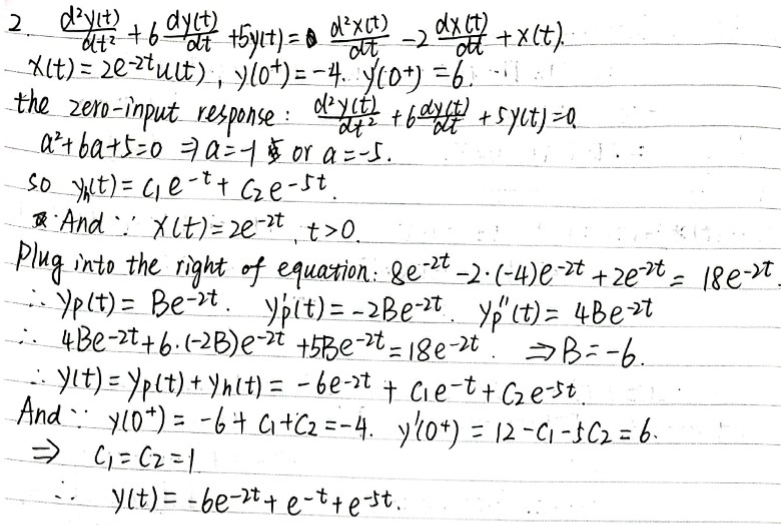 2. d²y(t)/dt² + 6 dy(t)/dt + 5y(t) = d²x(t)/dt - 2 dx(t)/dt + x(t).
x(t) = 2e^-2t u(t), y(0⁺) = -4. y'(0⁺) = 6.
the zero-input response: d²y(t)/dt² + 6 dy(t)/dt + 5y(t) = 0.
a² + 6a + 5 = 0 ⇒ a = -1 or a = -5.
so yh(t) = C₁e^-t + C₂e^-5t.
And ∵ x(t) = 2e^-2t, t>0.
Plug into the right of equation: 8e^-2t - 2·(-4)e^-2t + 2e^-2t = 18e^-2t.
∴ yp(t) = Be^-2t. yp'(t) = -2Be^-2t. yp''(t) = 4Be^-2t
∴ 4Be^-2t + 6·(-2B)e^-2t + 5Be^-2t = 18e^-2t. ⇒ B = -6.
∴ y(t) = yp(t) + yh(t) = -6e^-2t + C₁e^-t + C₂e^-5t.
And ∵ y(0⁺) = -6 + C₁ + C₂ = -4. y'(0⁺) = 12 - C₁ - 5C₂ = 6.
⇒ C₁ = C₂ = 1
∴ y(t) = -6e^-2t + e^-t + e^-5t.